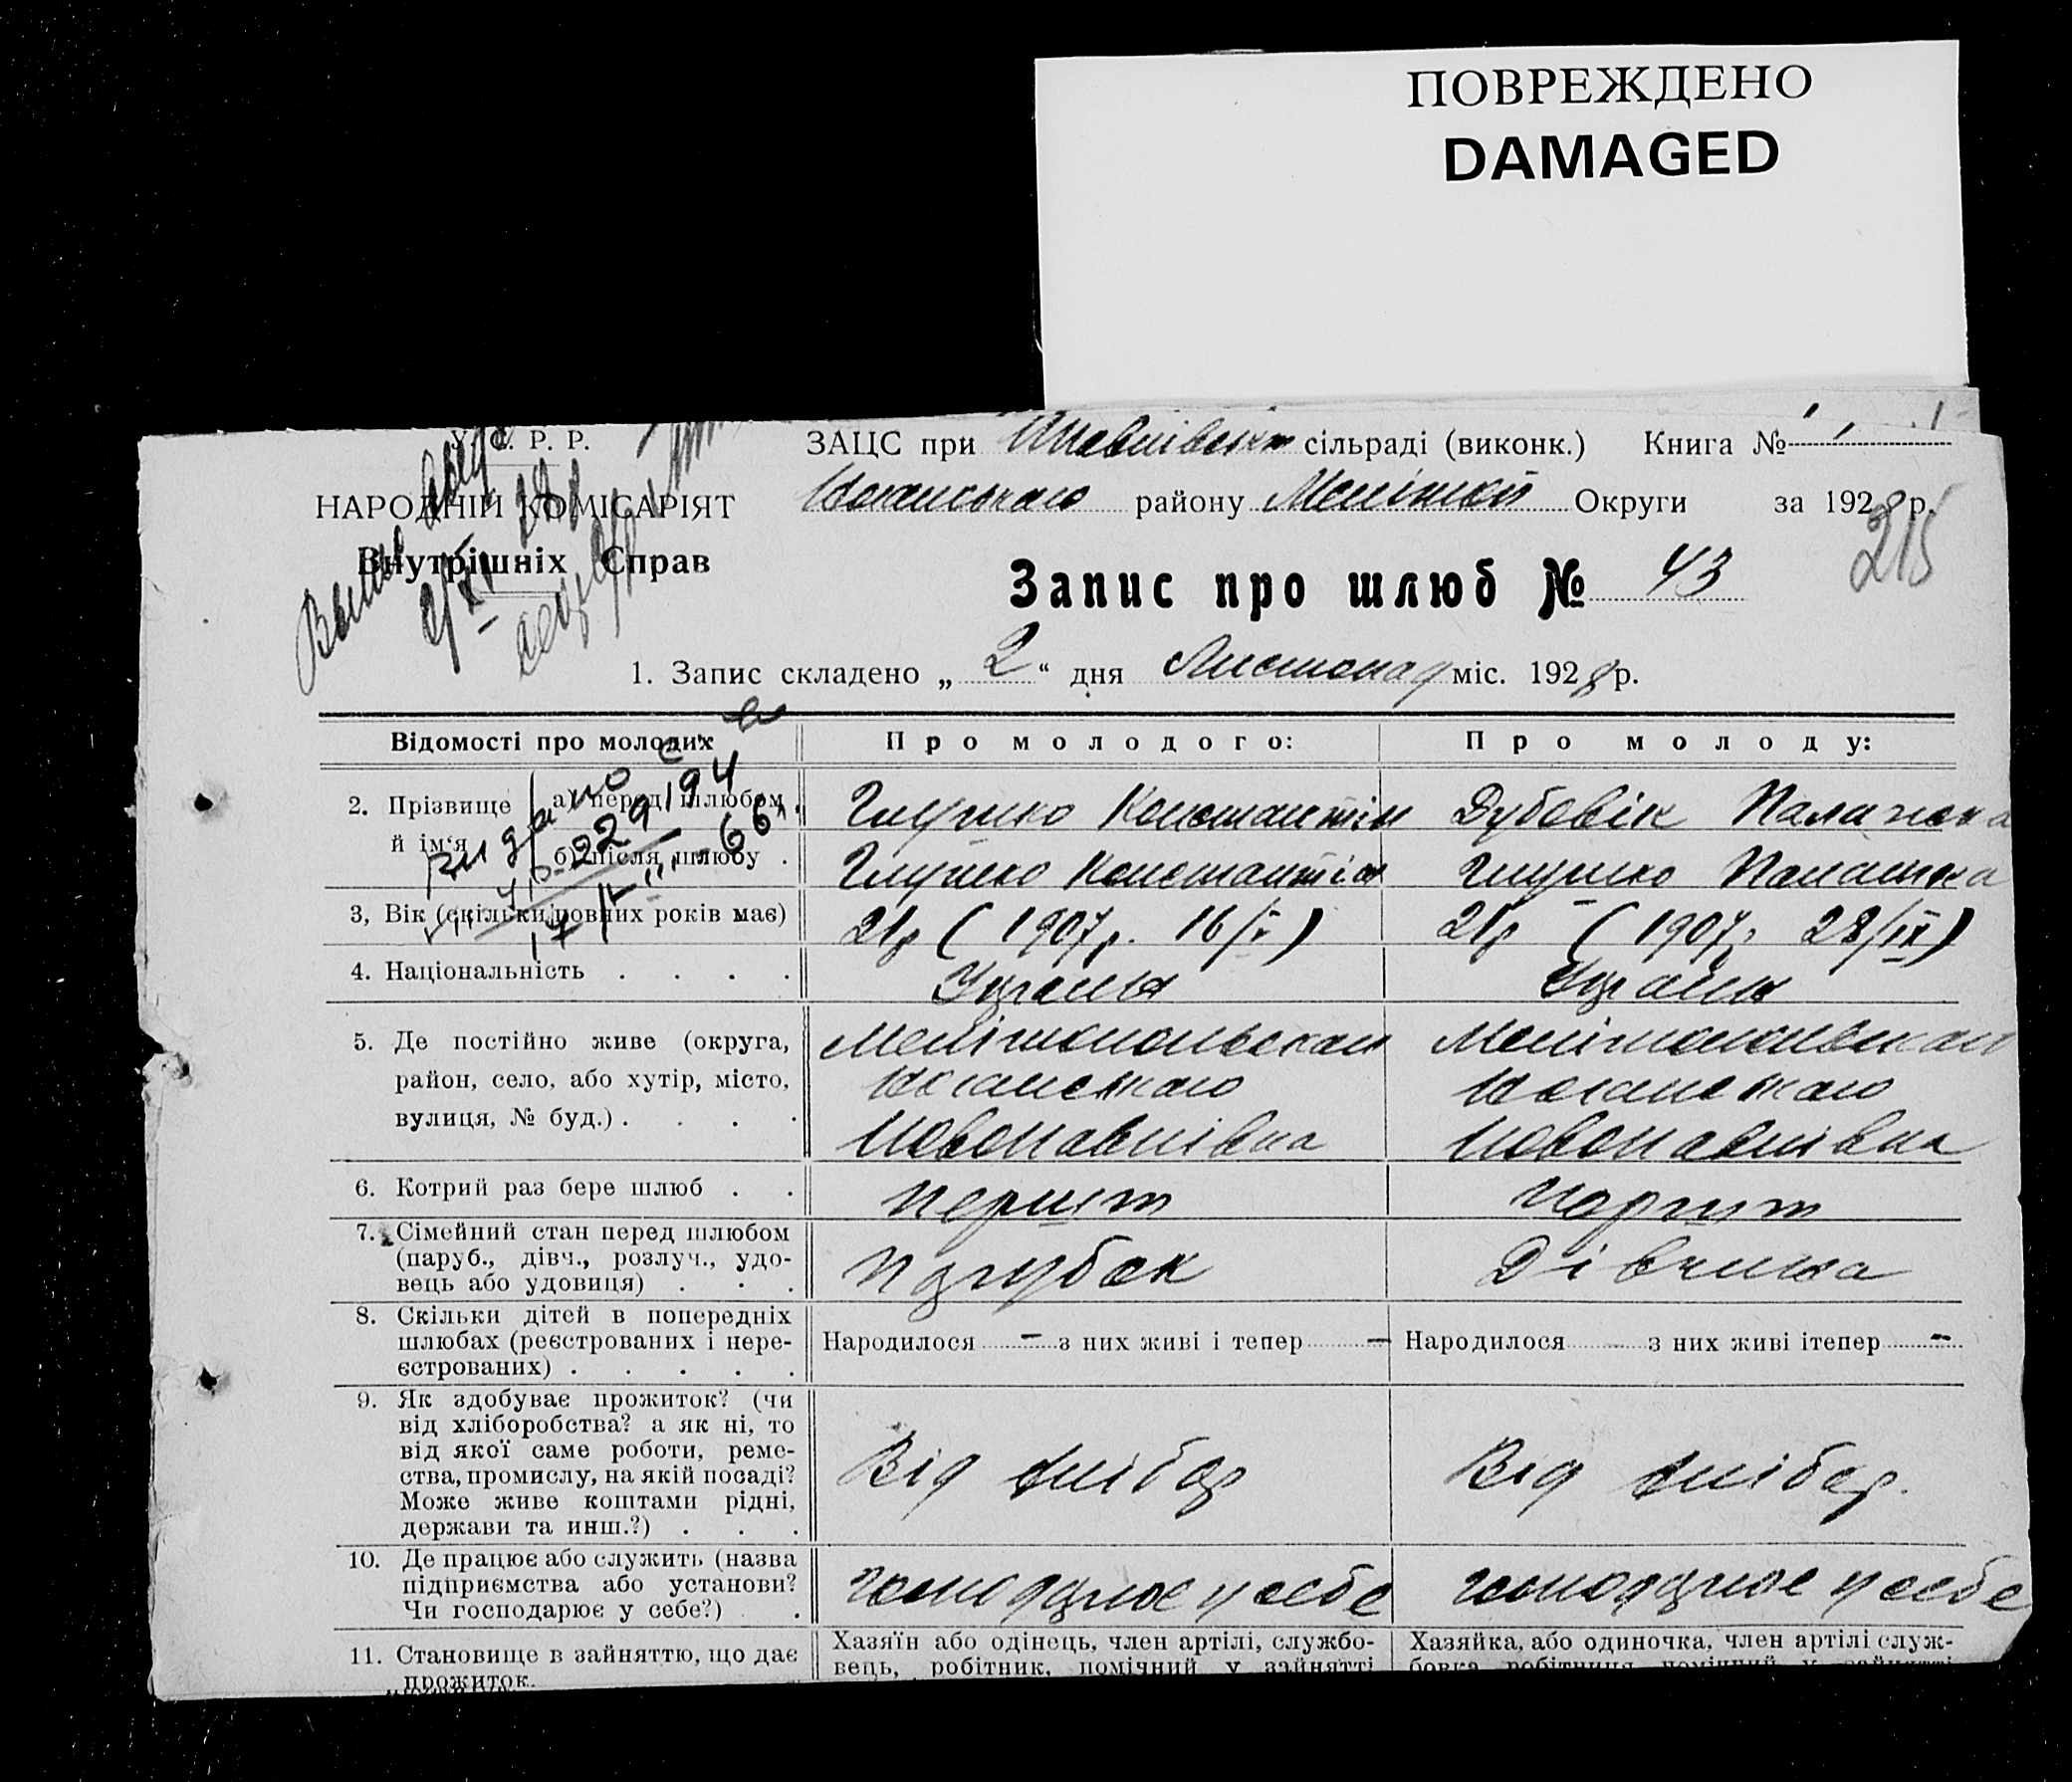 ПОВРЕЖДЕНО
DAMAGED
У. С. Р. Р.
НАРОДНІЙ КОМІСАРІЯТ
Внутрішніх Справ
ЗАЦС при сільраді (виконк.) Книга №
району Округи за 1928 р.
215
Запис про шлюб № 43
1. Запис складено „ 2 “ дня Листопад міс. 1928 р.
Відомості про молодих
Про молодого:
Про молоду:
2. Прізвище й ім'я
а) перед шлюбом
Глушко Константін
Дубовік Палажка
б) після шлюбу
Глушко Константін
Глушко Палашка
3, Вік (скільки повних років має)
21 р (1907 р. 16/V)
21 р (1907 р. 28/IX)
4. Національність
Україн
Україн
5. Де постійно живе (округа,
район, село, або хутір, місто,
вулиця, № буд.)
Мелітопольскаи
Ногайскаго
Новопавлівка
Мелітопольскаи
Ногайскаго
Новопавлівка
6. Котрий раз бере шлюб
Перший
Перший
7. Сімейний стан перед шлюбом
(паруб., дівч., розлуч., удо-
вець або удовиця)
Парубок
Дівчина
8. Скільки дітей в попередніх
шлюбах (реєстрованих і нере-
єстрованих)
Народилося — з них живі і тепер —
Народилося з них живі ітепер —
9. Як здобуває прожиток? (чи
від хліборобства? а як ні, то
від якої саме роботи, реме-
ства, промислу, на якій посаді?
Може живе коштами рідні,
держави та инш.?)
Від хлібор
Від хлібор.
10. Де працює або служить (назва
підприємства або установи?
Чи господарює у себе?)
у себе
у себе
11. Становище в зайняттю, що дає
прожиток.
Хазяїн або одінець, член артілі, службо-
вець, робітник, помічний у зайнятті
Хазяйка, або одиночка, член артілі служ-
бовка робітниця помічний у зайнятті